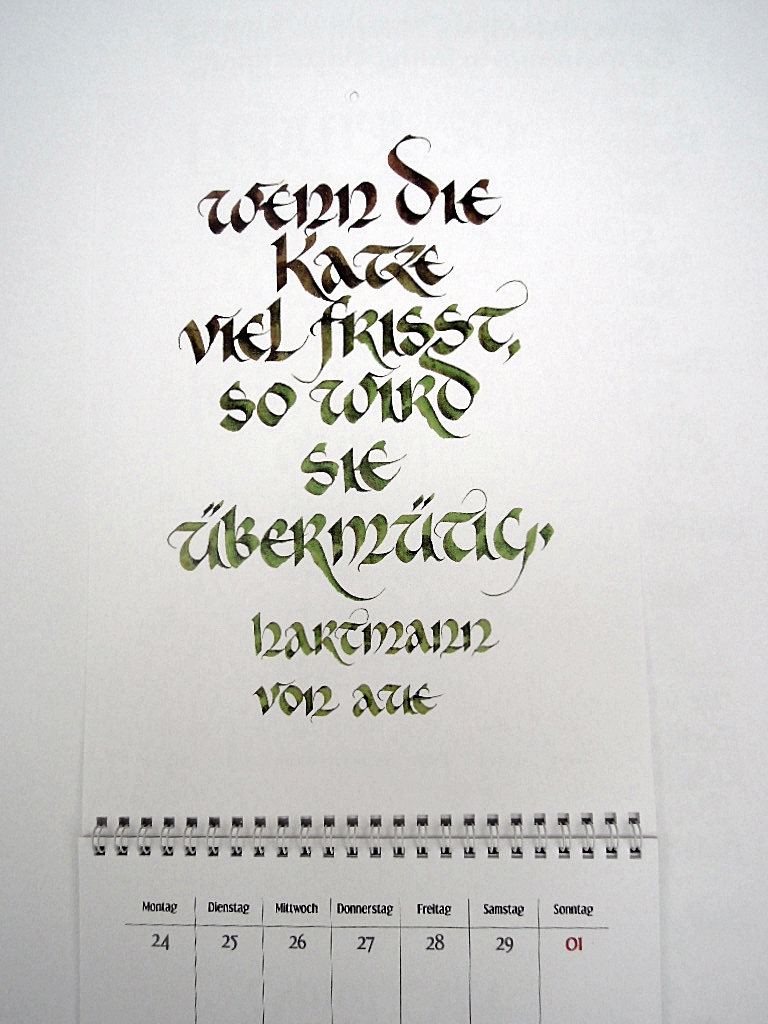 wenn die
Katze
viel frisst,
so wird
sie
übermütig.
hartmann
von aue
Montag Dienstag Mittwoch Donnerstag Freitag Samstag Sonntag
24 25 26 27 28 29 01